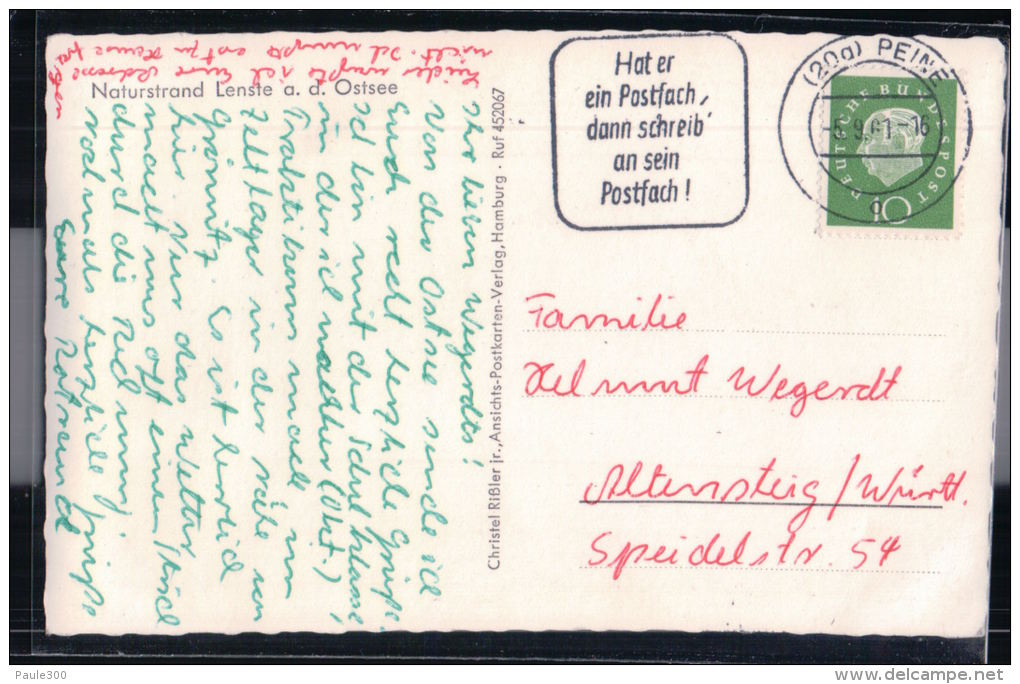 Naturstrand Lenste a. d. Ostsee
Leider wußte ich Eure Adresse
nicht. Ich mußte erst zu Hause fragen
Ihr lieben Wegerdts!
Von der Ostsee sende ich
Euch recht herzliche Grüße.
Ich bin mit der Schulklasse
in der ich
Praktikum mache im
Zeltlager in der Nähe von
Grömitz. Es ist herrlich
hier. Nur das Wetter
macht uns oft einen Strich
durch die Rechnung
nochmals herzliche Grüße
Eure Rotraud
Christel Rißler jr., Ansichts-Postkarten-Verlag, Hamburg · Ruf 452067
Hat er
ein Postfach,
dann schreib'
an sein
Postfach!
(20a) PEINE
5.9.61-16
DEUTSCHE BUNDESPOST
10
Familie
Helmut Wegerdt
Altensteig/Württ.
Speidelstr. 54
Paule300
www.delcampe.net